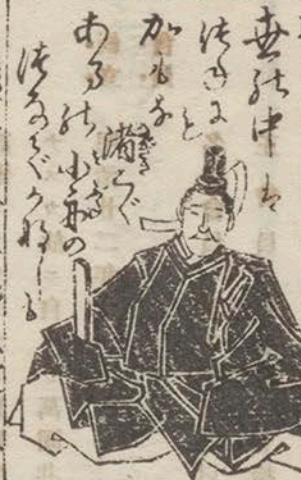 世の中は
つねにも
かもな
渚こぐ
あまの小舟の
つなでかなしも